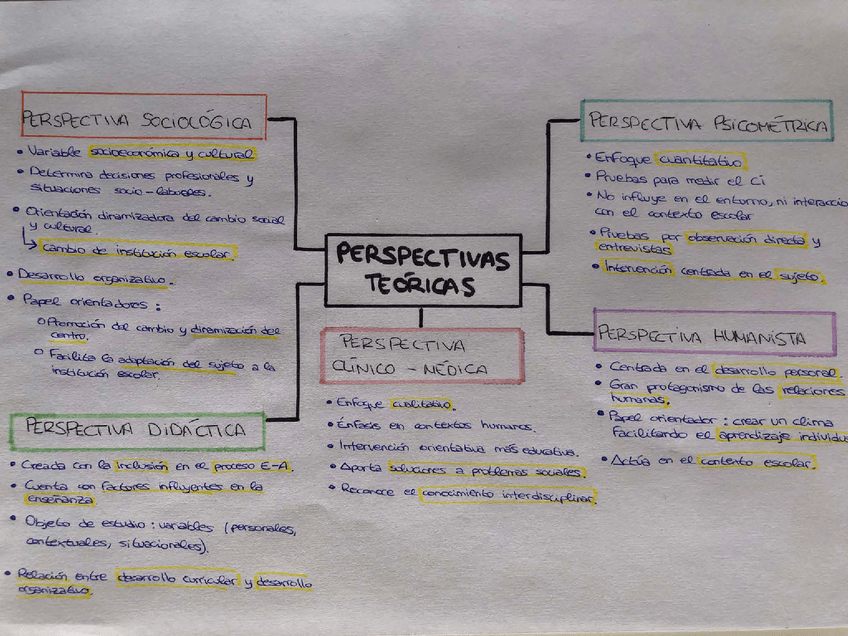 PERSPECTIVAS
TEÓRICAS
PERSPECTIVA SOCIOLÓGICA
• Variable socioeconómica y cultural
• Determina decisiones profesionales y
situaciones socio-laborales.
• Orientación dinamizadora del cambio social
y cultural.
↳ cambio de institución escolar.
• Desarrollo organizativo.
• Papel orientadores :
o Promoción del cambio y dinamización del
centro.
o Facilita la adaptación del sujeto a la
institución escolar.
PERSPECTIVA DIDÁCTICA
• Creada con la inclusión en el proceso E-A.
• Cuenta con factores influyentes en la
enseñanza
• Objeto de estudio : variables (personales,
contextuales, situacionales).
• Relación entre desarrollo curricular y desarrollo
organizativo.
PERSPECTIVA
CLÍNICO - MÉDICA
• Enfoque cualitativo.
• Énfasis en contextos humanos.
• Intervención orientativa más educativa.
• Aporta soluciones a problemas sociales.
• Reconoce el conocimiento interdisciplinar.
PERSPECTIVA PSICOMÉTRICA
• Enfoque cuantitativo
• Pruebas para medir el Ci
• No influye en el entorno, ni interacci
con el contexto escolar
• Pruebas por observación directa y
entrevistas
• Intervención centrada en el sujeto.
PERSPECTIVA HUMANISTA
• Centrada en el desarrollo personal.
• Gran protagonismo de las relaciones
humanas.
• Papel orientador : crear un clima
facilitando el aprendizaje individu
• Actúa en el contexto escolar.